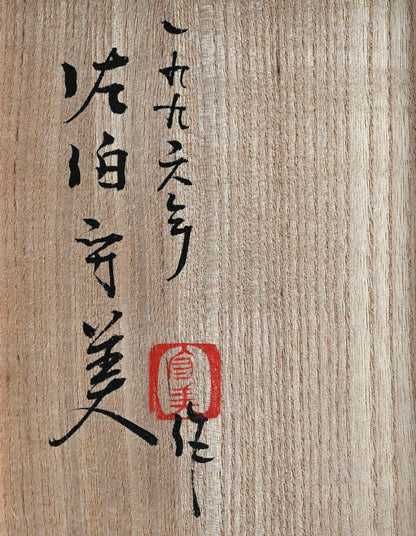 一九九六年
佐伯守美
守美
作